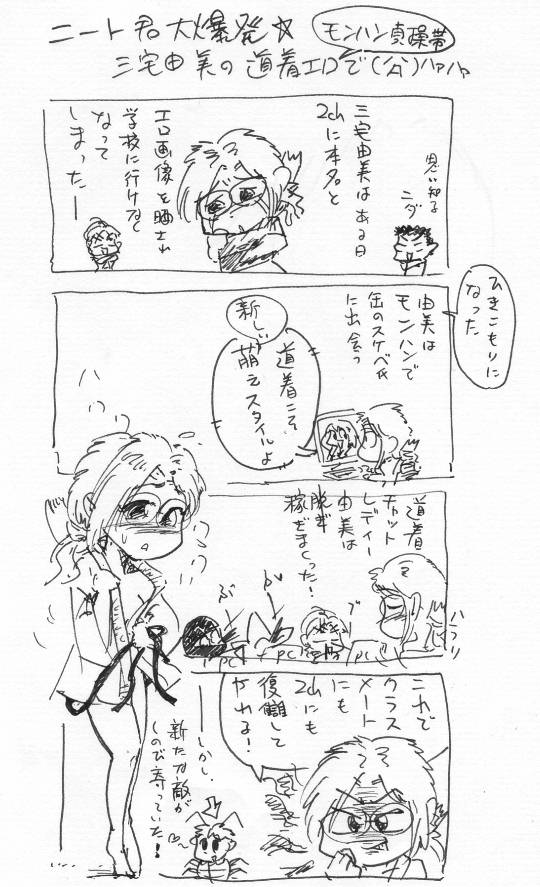 ニート君大爆発☆
モンハン貞操帯
三宅由美の道着エロで(公)ハァハァ
思い知る
ニダ
三宅由美はある日
2chに本名と
エロ画像を晒され
学校に行けなく
なって
しまったー
ひきこもりに
なった
由美は
モンハンで
缶のスケベ氏
に出会う
新しい
道着こそ
萌えスタイルよ
ハァ
道着
チャット
レディー
由美は
脱ぎ
稼ぎまくった!
ハラリ
ブ
pc
pc
pc
これで
クラス
メート
にも
2chにも
復讐して
やれる!
しかし、
新たな敵が
しのび寄っていた!